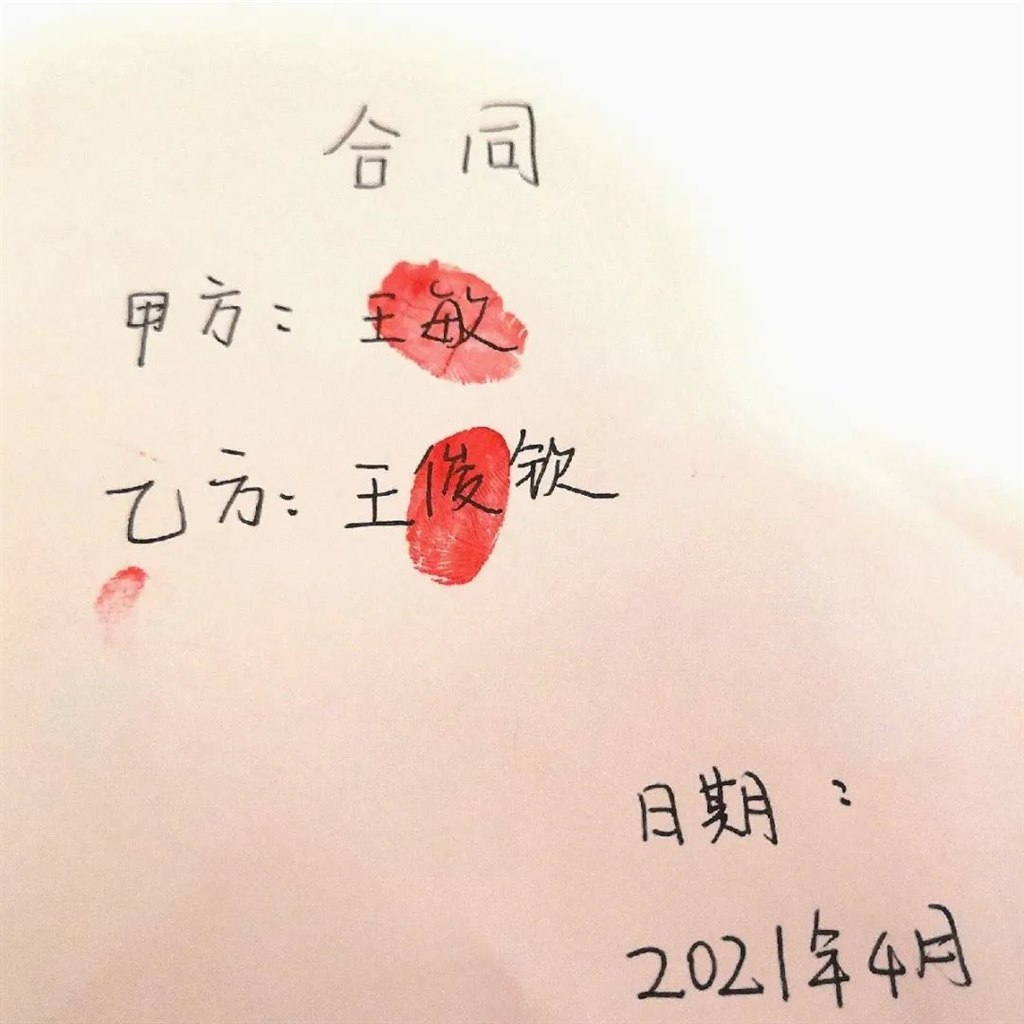 合同
甲方：王敏
乙方：王俊钦
日期：
2021年4月